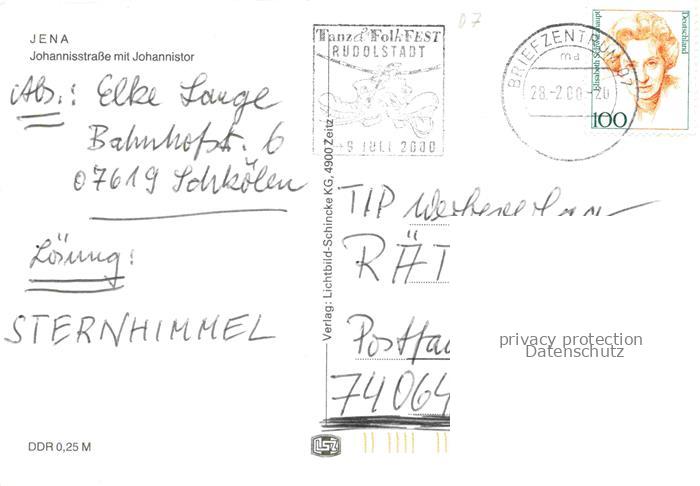 JENA
Johannisstraße mit Johannistor
Abs.: Elke Lange
Bahnhofstr. 6
07619 Schkölen
Lösung:
STERNHIMMEL
DDR 0,25 M
Verlag: Lichtbild-Schincke KG, 4900 Zeitz
07
Tanz & Folk FEST
RUDOLSTADT
9 JULI 2000
BRIEFZENTRUM 07
ma
28.-2.00-20
Deutschland
Elisabeth Schwarzhaupt
100
TIP
RÄT
Postfa
74064
LSZ
privacy protection
Datenschutz